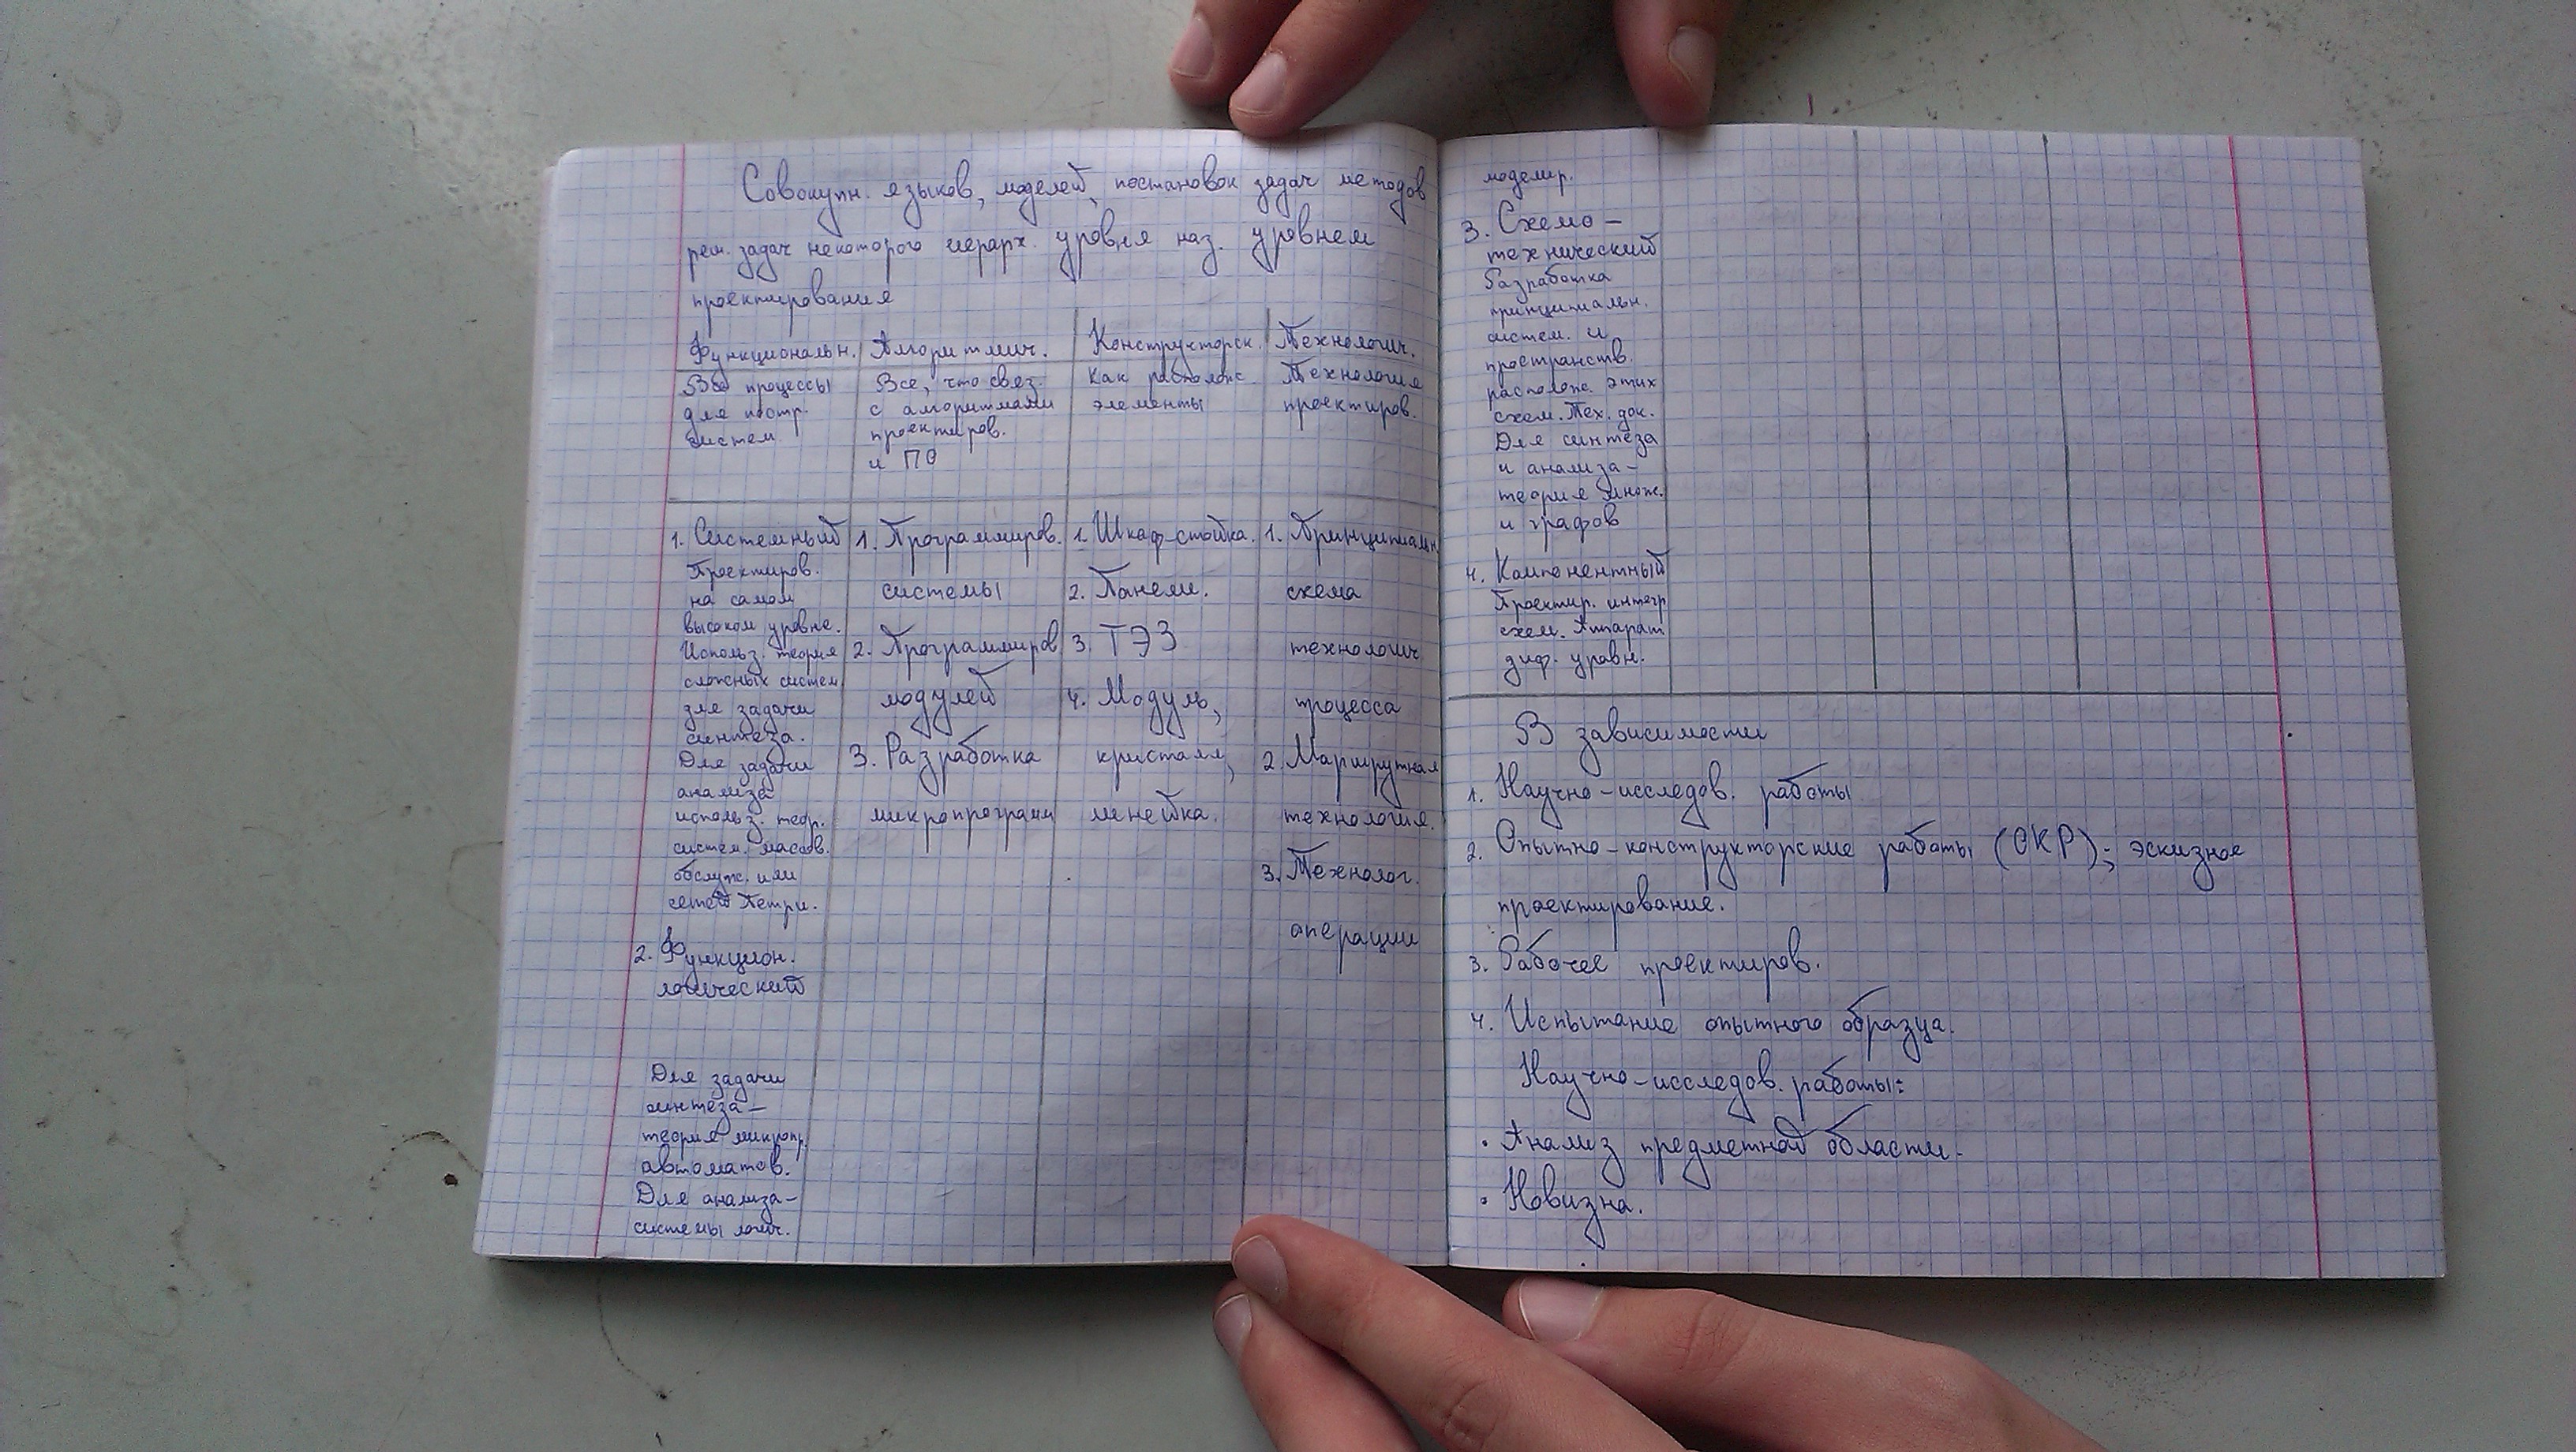 Совокупн. языков, моделей, постановок задач методов
реш. задач некоторого иерарх. уровня наз. уровнем
проектирования
Функциональн.
Все процессы
для постр.
систем
Алгоритмич.
Все, что связ.
с алгоритмами
проектиров.
и ПО
Конструкторск.
Как располож.
элементы
Технологич.
Технология
проектиров.
1. Системный
Проектиров.
на самом
высоком уровне.
Использ. теория
сложных систем
для задачи
синтеза.
Для задачи
анализа
использ. теор.
систем. массов.
обслуж. или
сетей Петри.
2. Функцион.
логический
Для задачи
синтеза –
теория микропр.
автоматов.
Для анализа –
системы логич.
1. Программиров.
системы
2. Программиров
модулей
3. Разработка
микропрограмм
1. Шкаф-стойка.
2. Панели.
3. ТЭЗ
4. Модуль,
кристалл,
линейка.
1. Принципиальн.
схема
технологич
процесса
2. Маршрутная
технология.
3. Технолог.
операции
моделир.
3. Схемо –
технический
Разработка
принципиальн.
систем. и
пространств.
располож. этих
схем. Тех. док.
Для синтеза
и анализа –
теория множ.
и графов
4. Компонентный
Проектир. интегр
схем. Аппарат
диф. уравн.
В зависимости
1. Научно-исследов. работы
2. Опытно-конструкторские работы (ОКР); эскизное
проектирование.
3. Рабочее проектиров.
4. Испытание опытного образца.
Научно-исследов. работы:
• Анализ предметной области.
• Новизна.